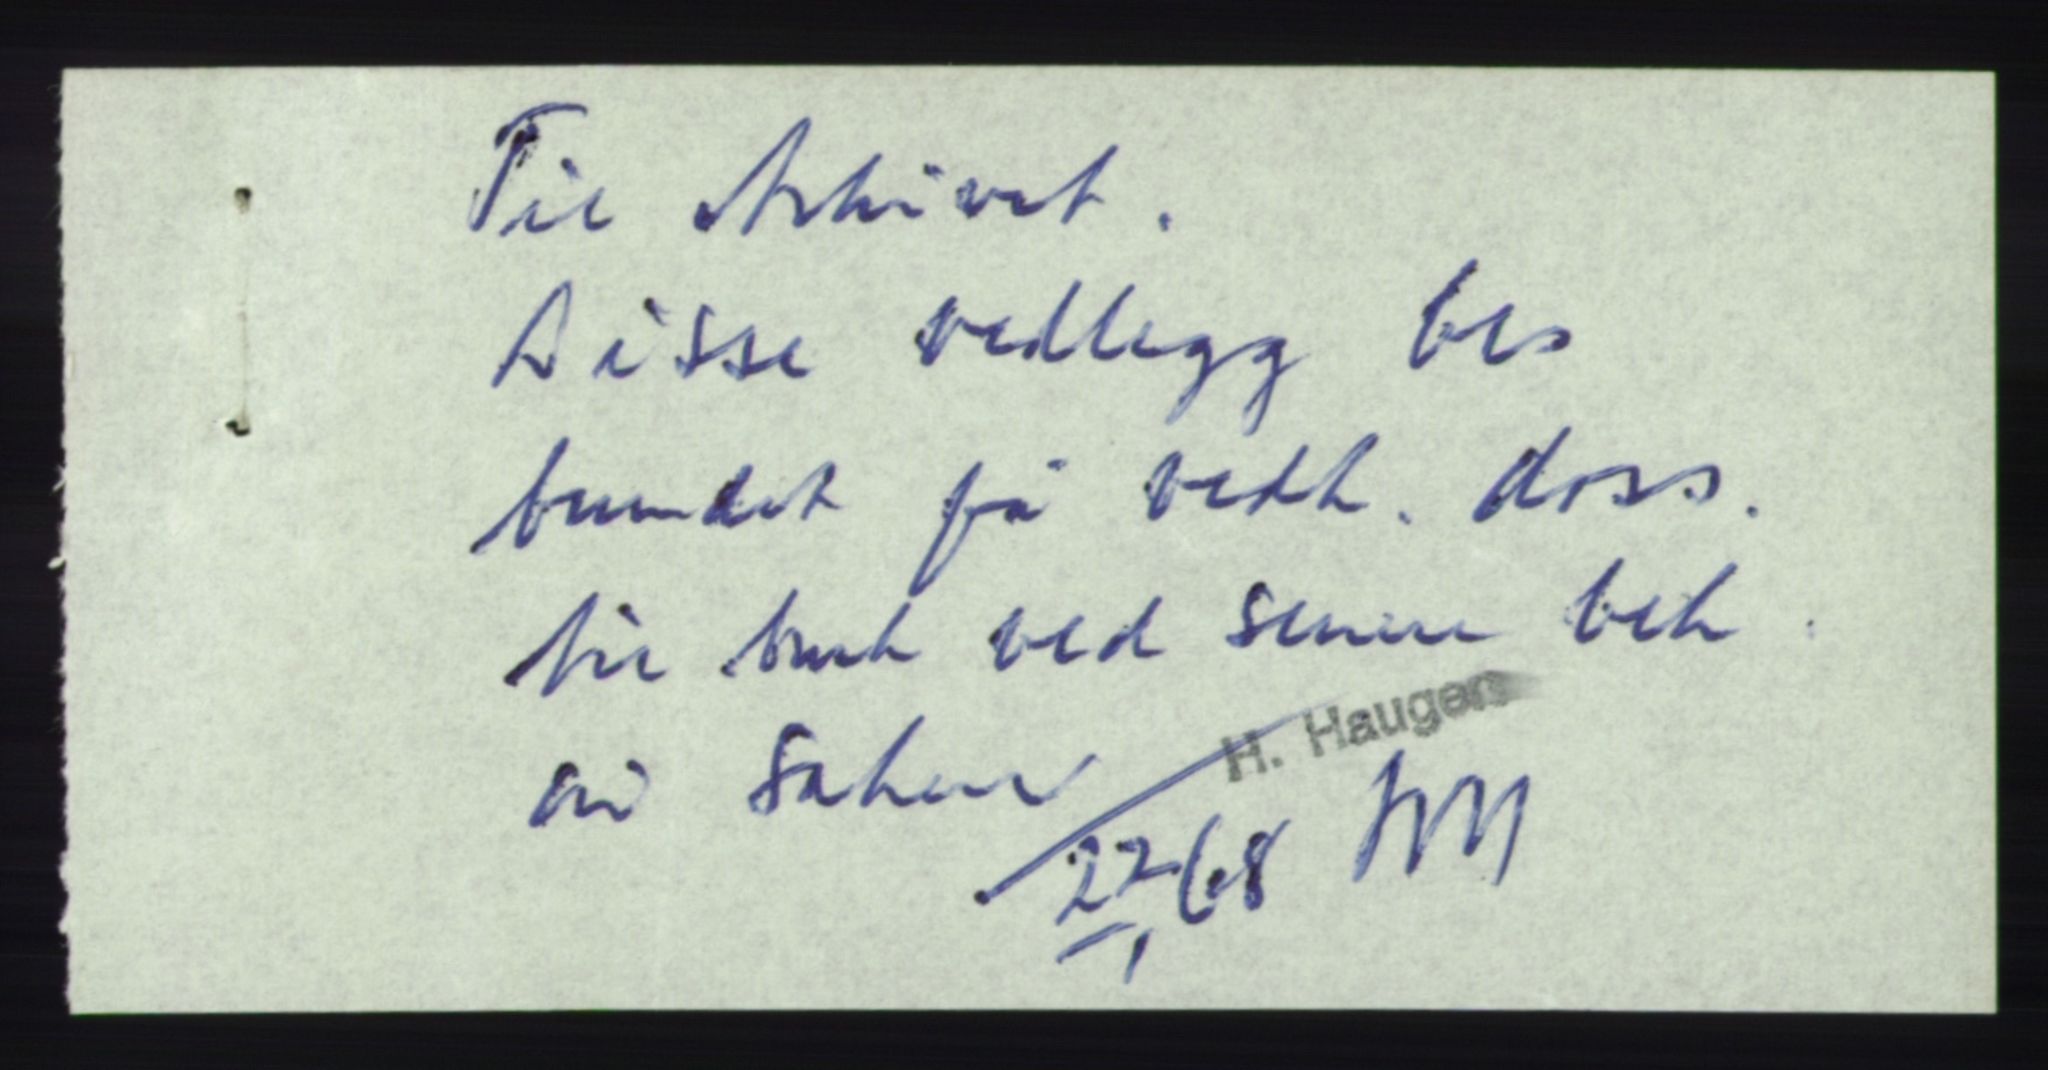 Til Arkivet.
Disse vedlegg bes
bundet på vedl. doss.
til bruk ved senere beh.
av saken
H. Haugen
27/1 68 HH